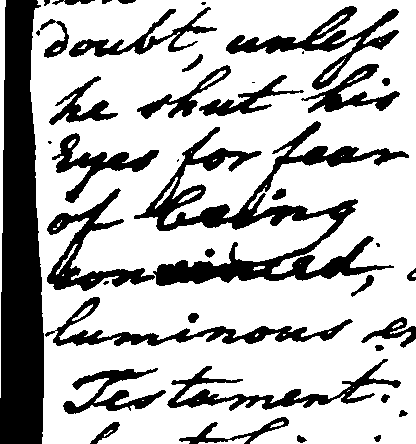 doubt, unless
he shut his
Eyes for fear
of being
convinced,
luminous
Testament.